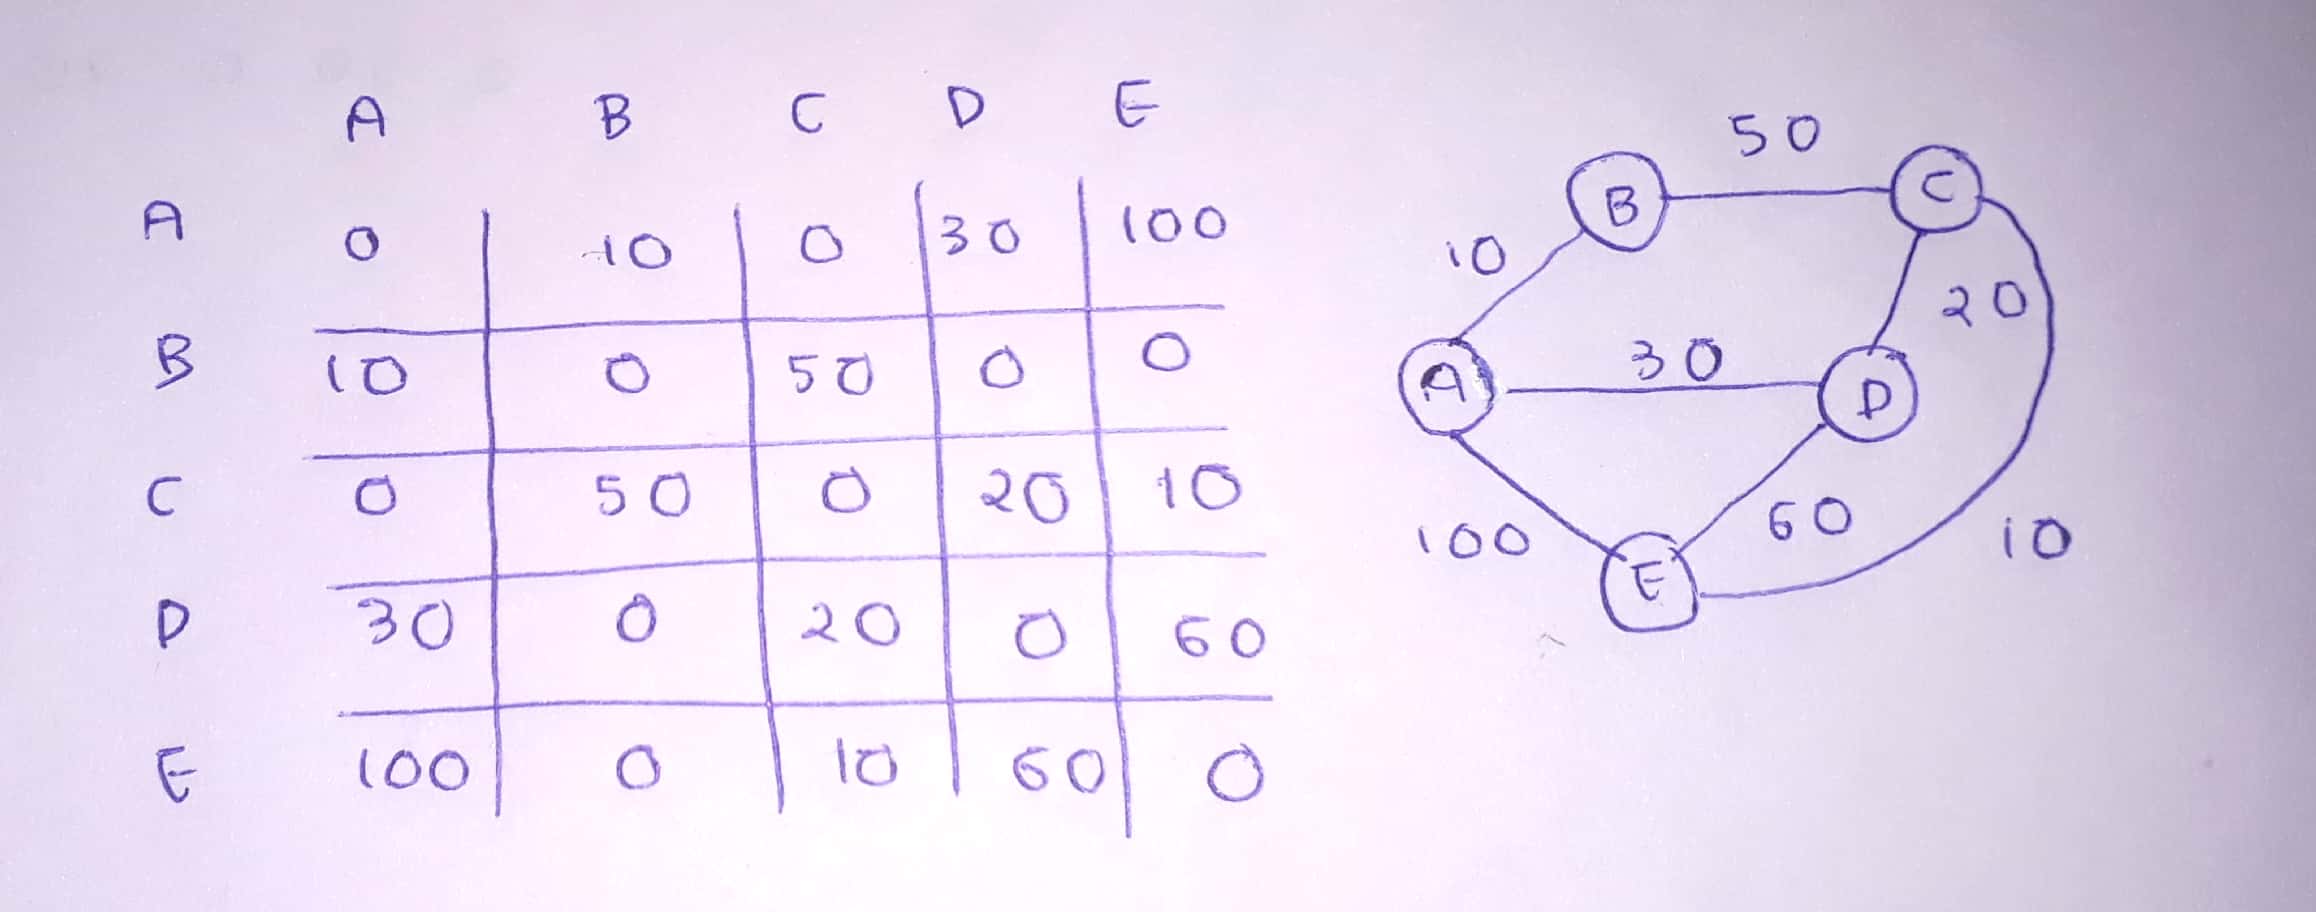 A B C D E
A 0 10 0 30 100
B 10 0 50 0 0
C 0 50 0 20 10
D 30 0 20 0 60
E 100 0 10 60 0
50
B C
10
20
30
A D
60
100 10
E